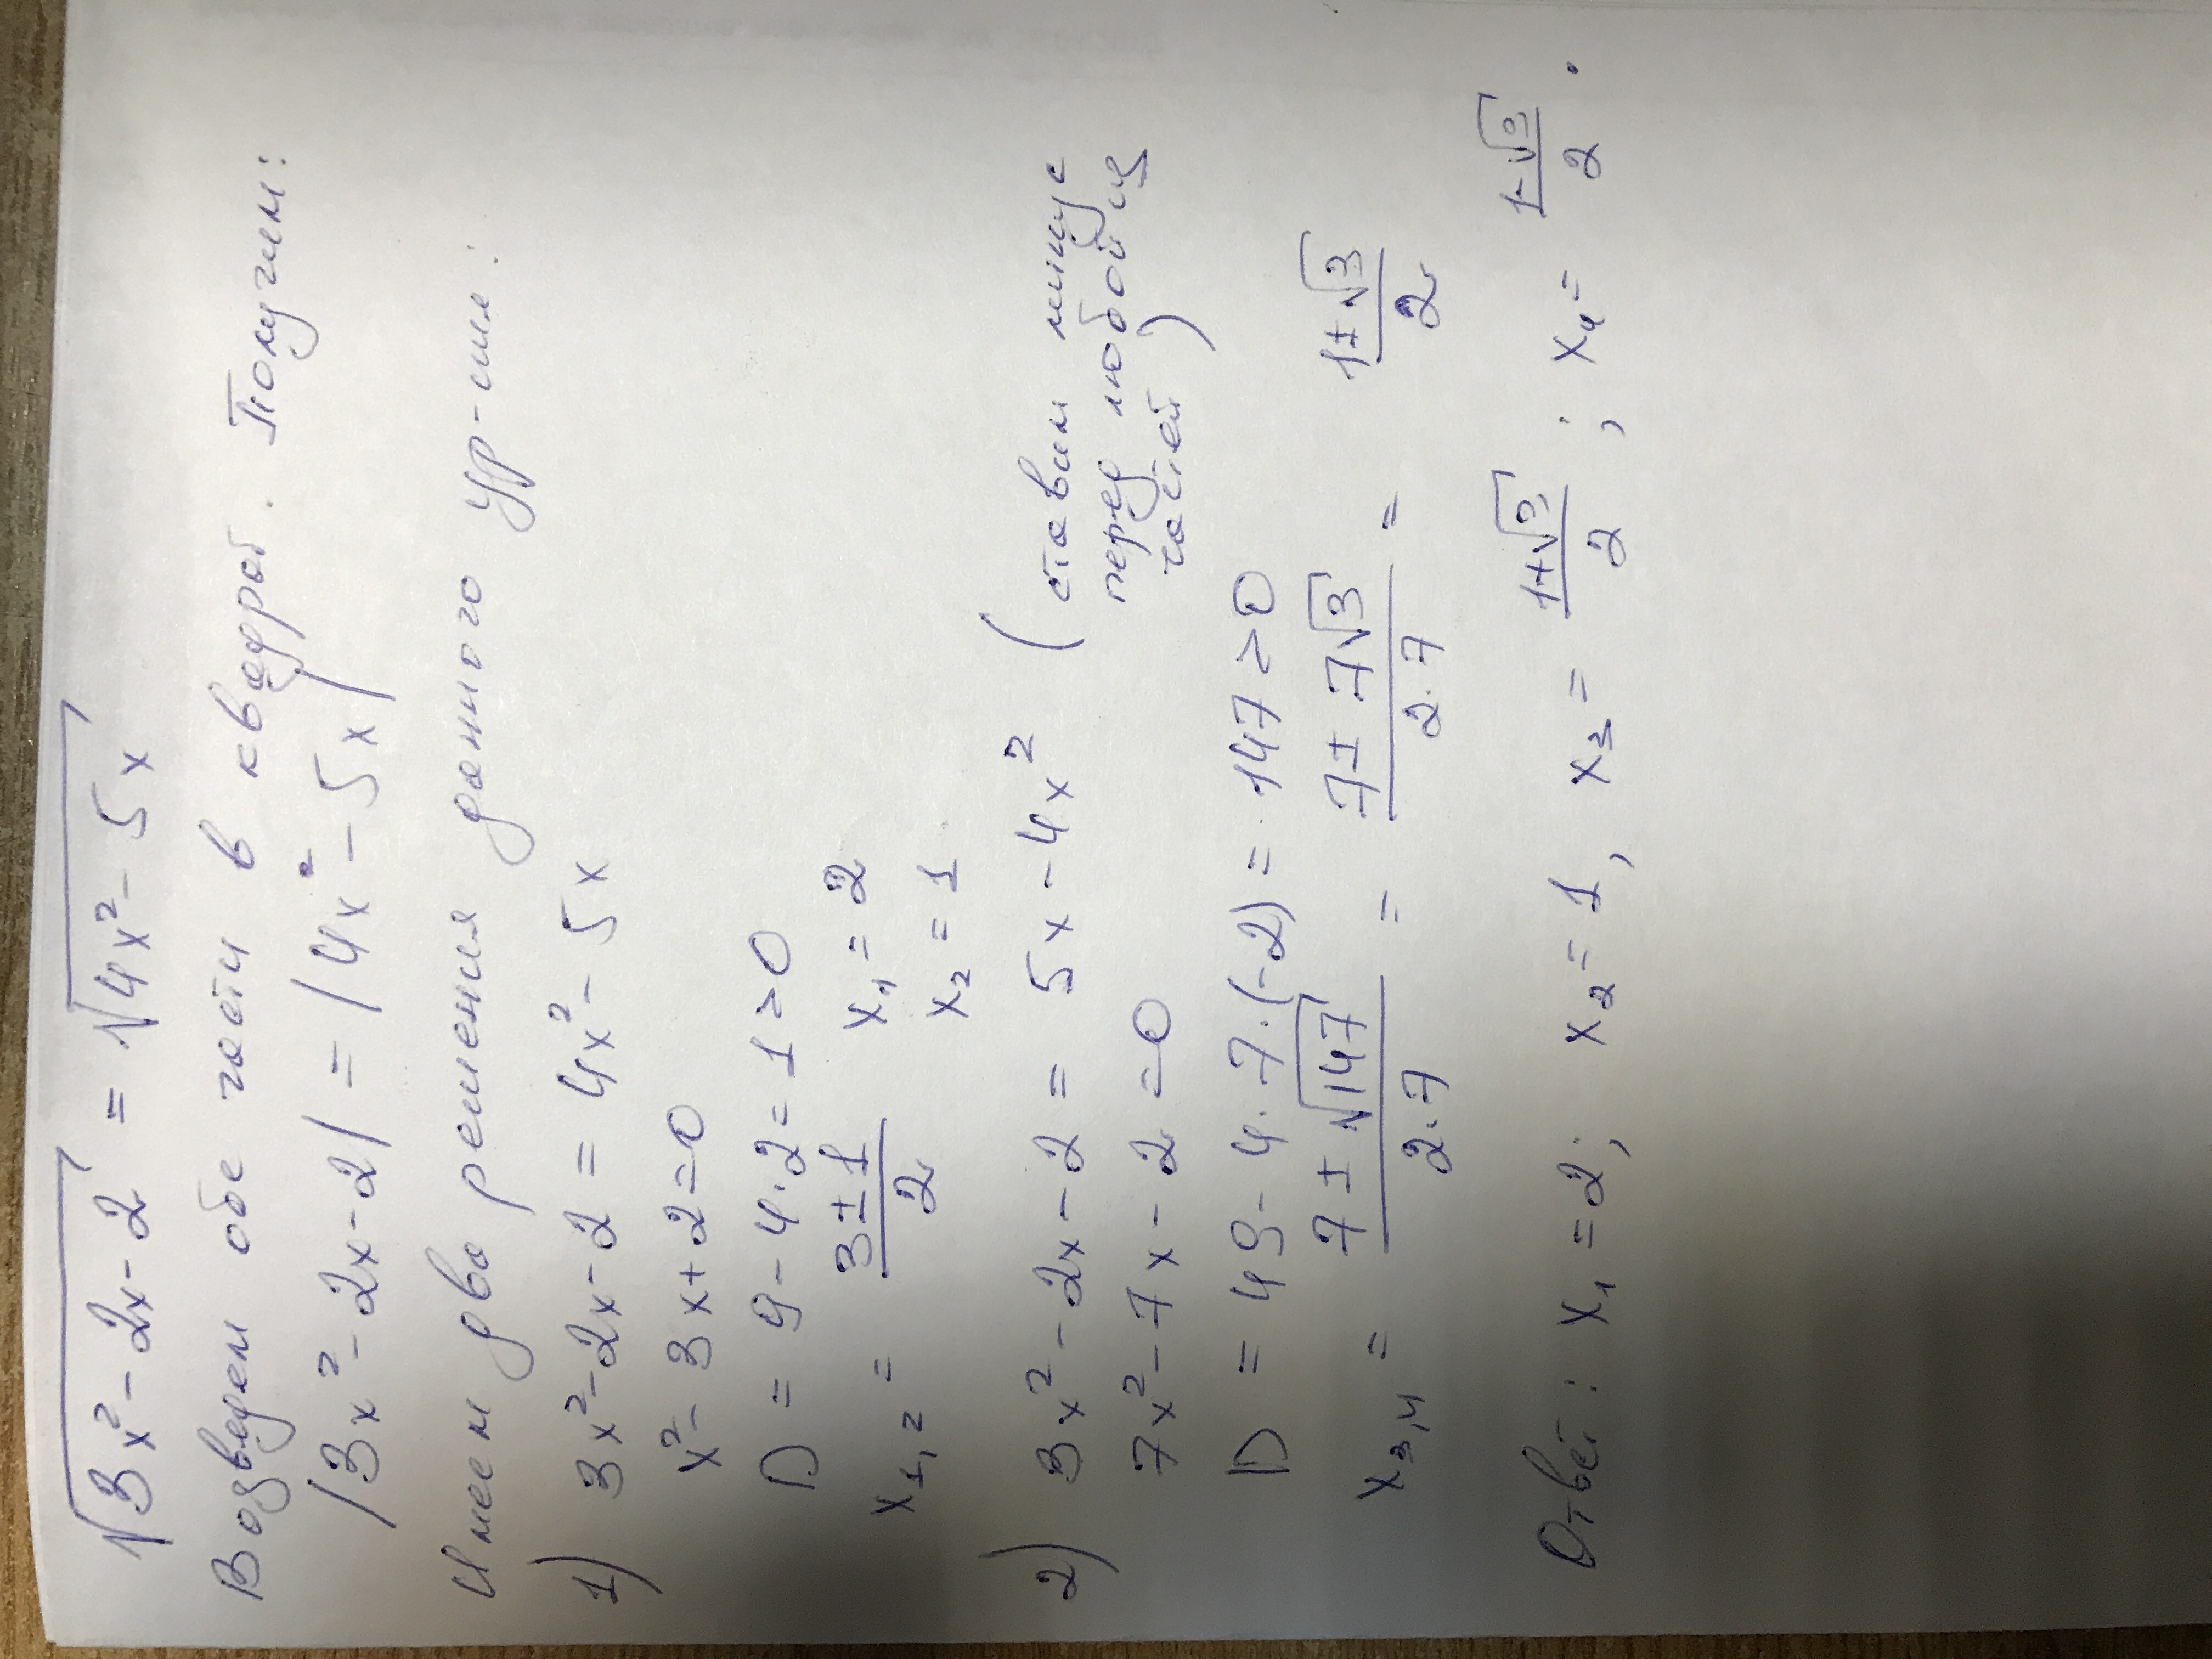 √3x²-2x-2 = √4x²-5x
Возведем обе части в квадрат. Получим:
|3x²-2x-2| = |4x²-5x|
Имеем два решения данного ур-ния:
1) 3x²-2x-2 = 4x²-5x
x²-3x+2=0
D = 9-4·2=1>0
x₁,₂ = (3±1)/2 x₁=2
x₂=1
2) 3x²-2x-2 = 5x-4x² (ставим минус
перед любой из
частей)
7x²-7x-2=0
D = 49-4·7·(-2)=147>0
x₃,₄ = (7±√147)/(2·7) = (7±7√3)/(2·7) = (1±√3)/2
Ответ: x₁=2; x₂=1, x₃=(1+√3)/2; x₄=(1-√3)/2.